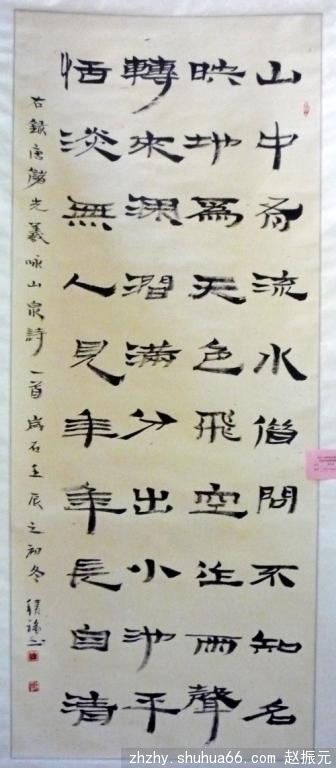 山中有流水借問不知名
映地爲天色飛空注雨聲
轉來深澗滿分出小池平
恬淡無人見年年長自清
右錄唐儲光羲咏山泉詩一首歲在壬辰之初冬
zhzhy.shuhua66.com 赵振元